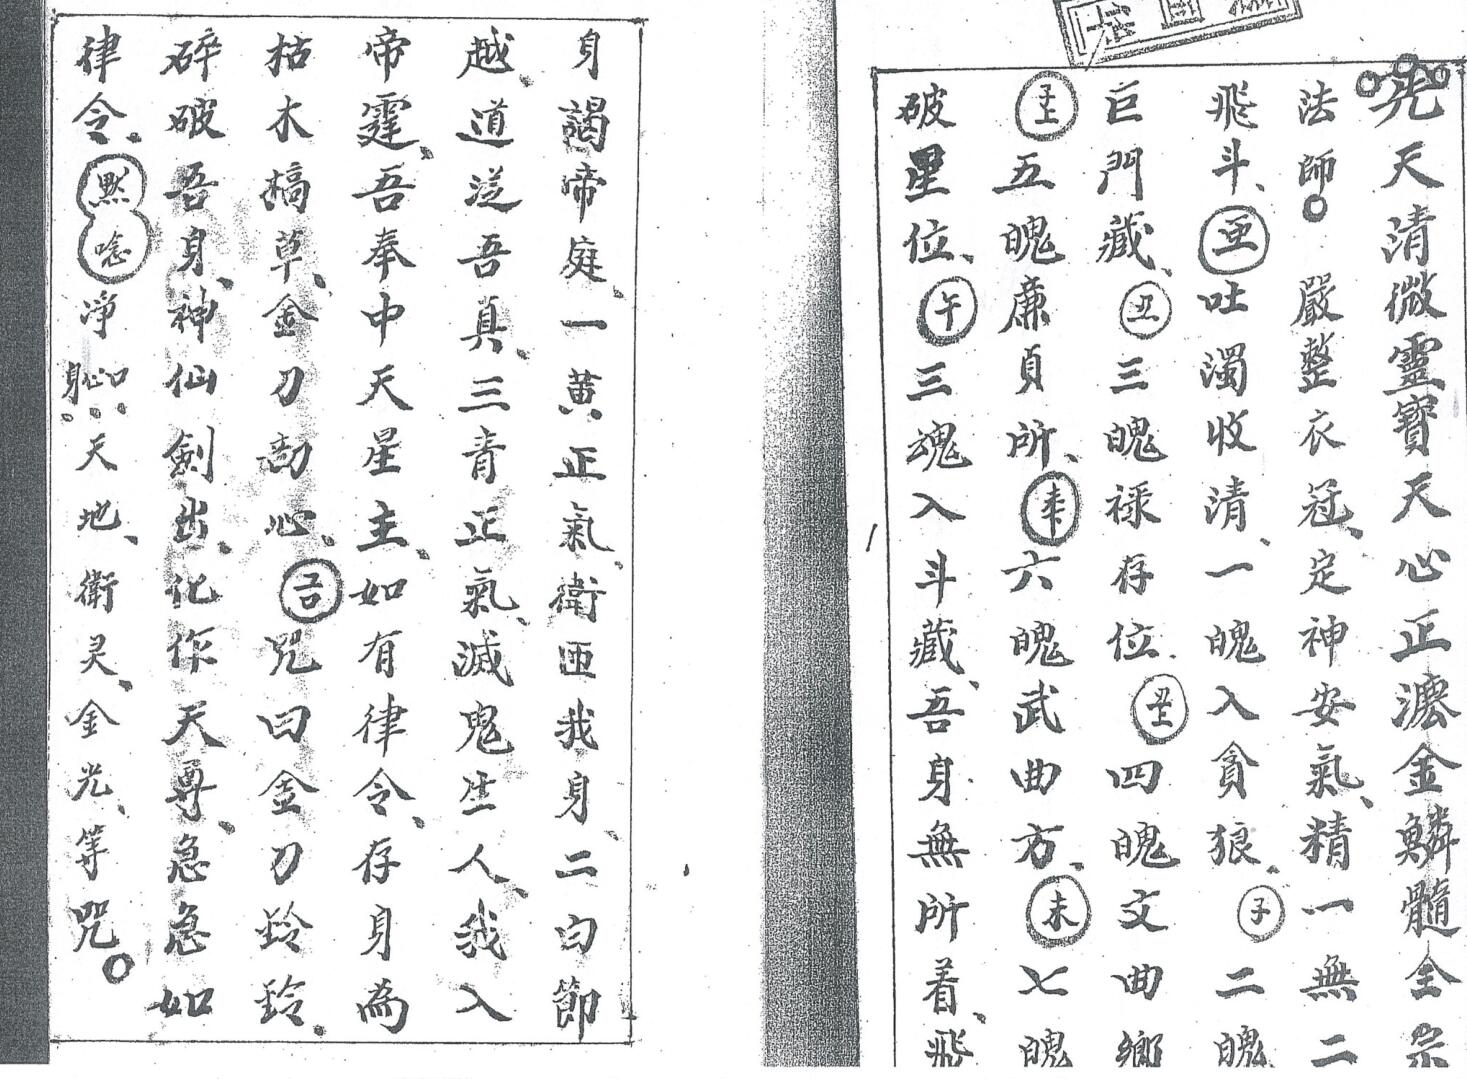 先天清微靈寶天心正濂金鱗髓全宗
法師 嚴整衣冠、定神安氣、精一無二
飛斗、亟吐濁收清、一魄入貪狼、子二魄
巨門藏、丑三魄禄存位、四魄文曲鄉
五魄廉貞所、六魄武曲方、未七魄
破星位、午三魂入斗藏、吾身無所着、飛
身謁帝庭、一黄正氣、衛匝我身、二白節
越、道送吾真、三青正氣、滅鬼生人、我入
帝霆、吾奉中天星主、如有律令、存身為
枯木槁草、金刀刮心、咒曰金刀玲玲、
碎破吾身、神仙劍出、化作天尊、急急如
律令、默念淨心口身天地、衛灵、金光、等咒